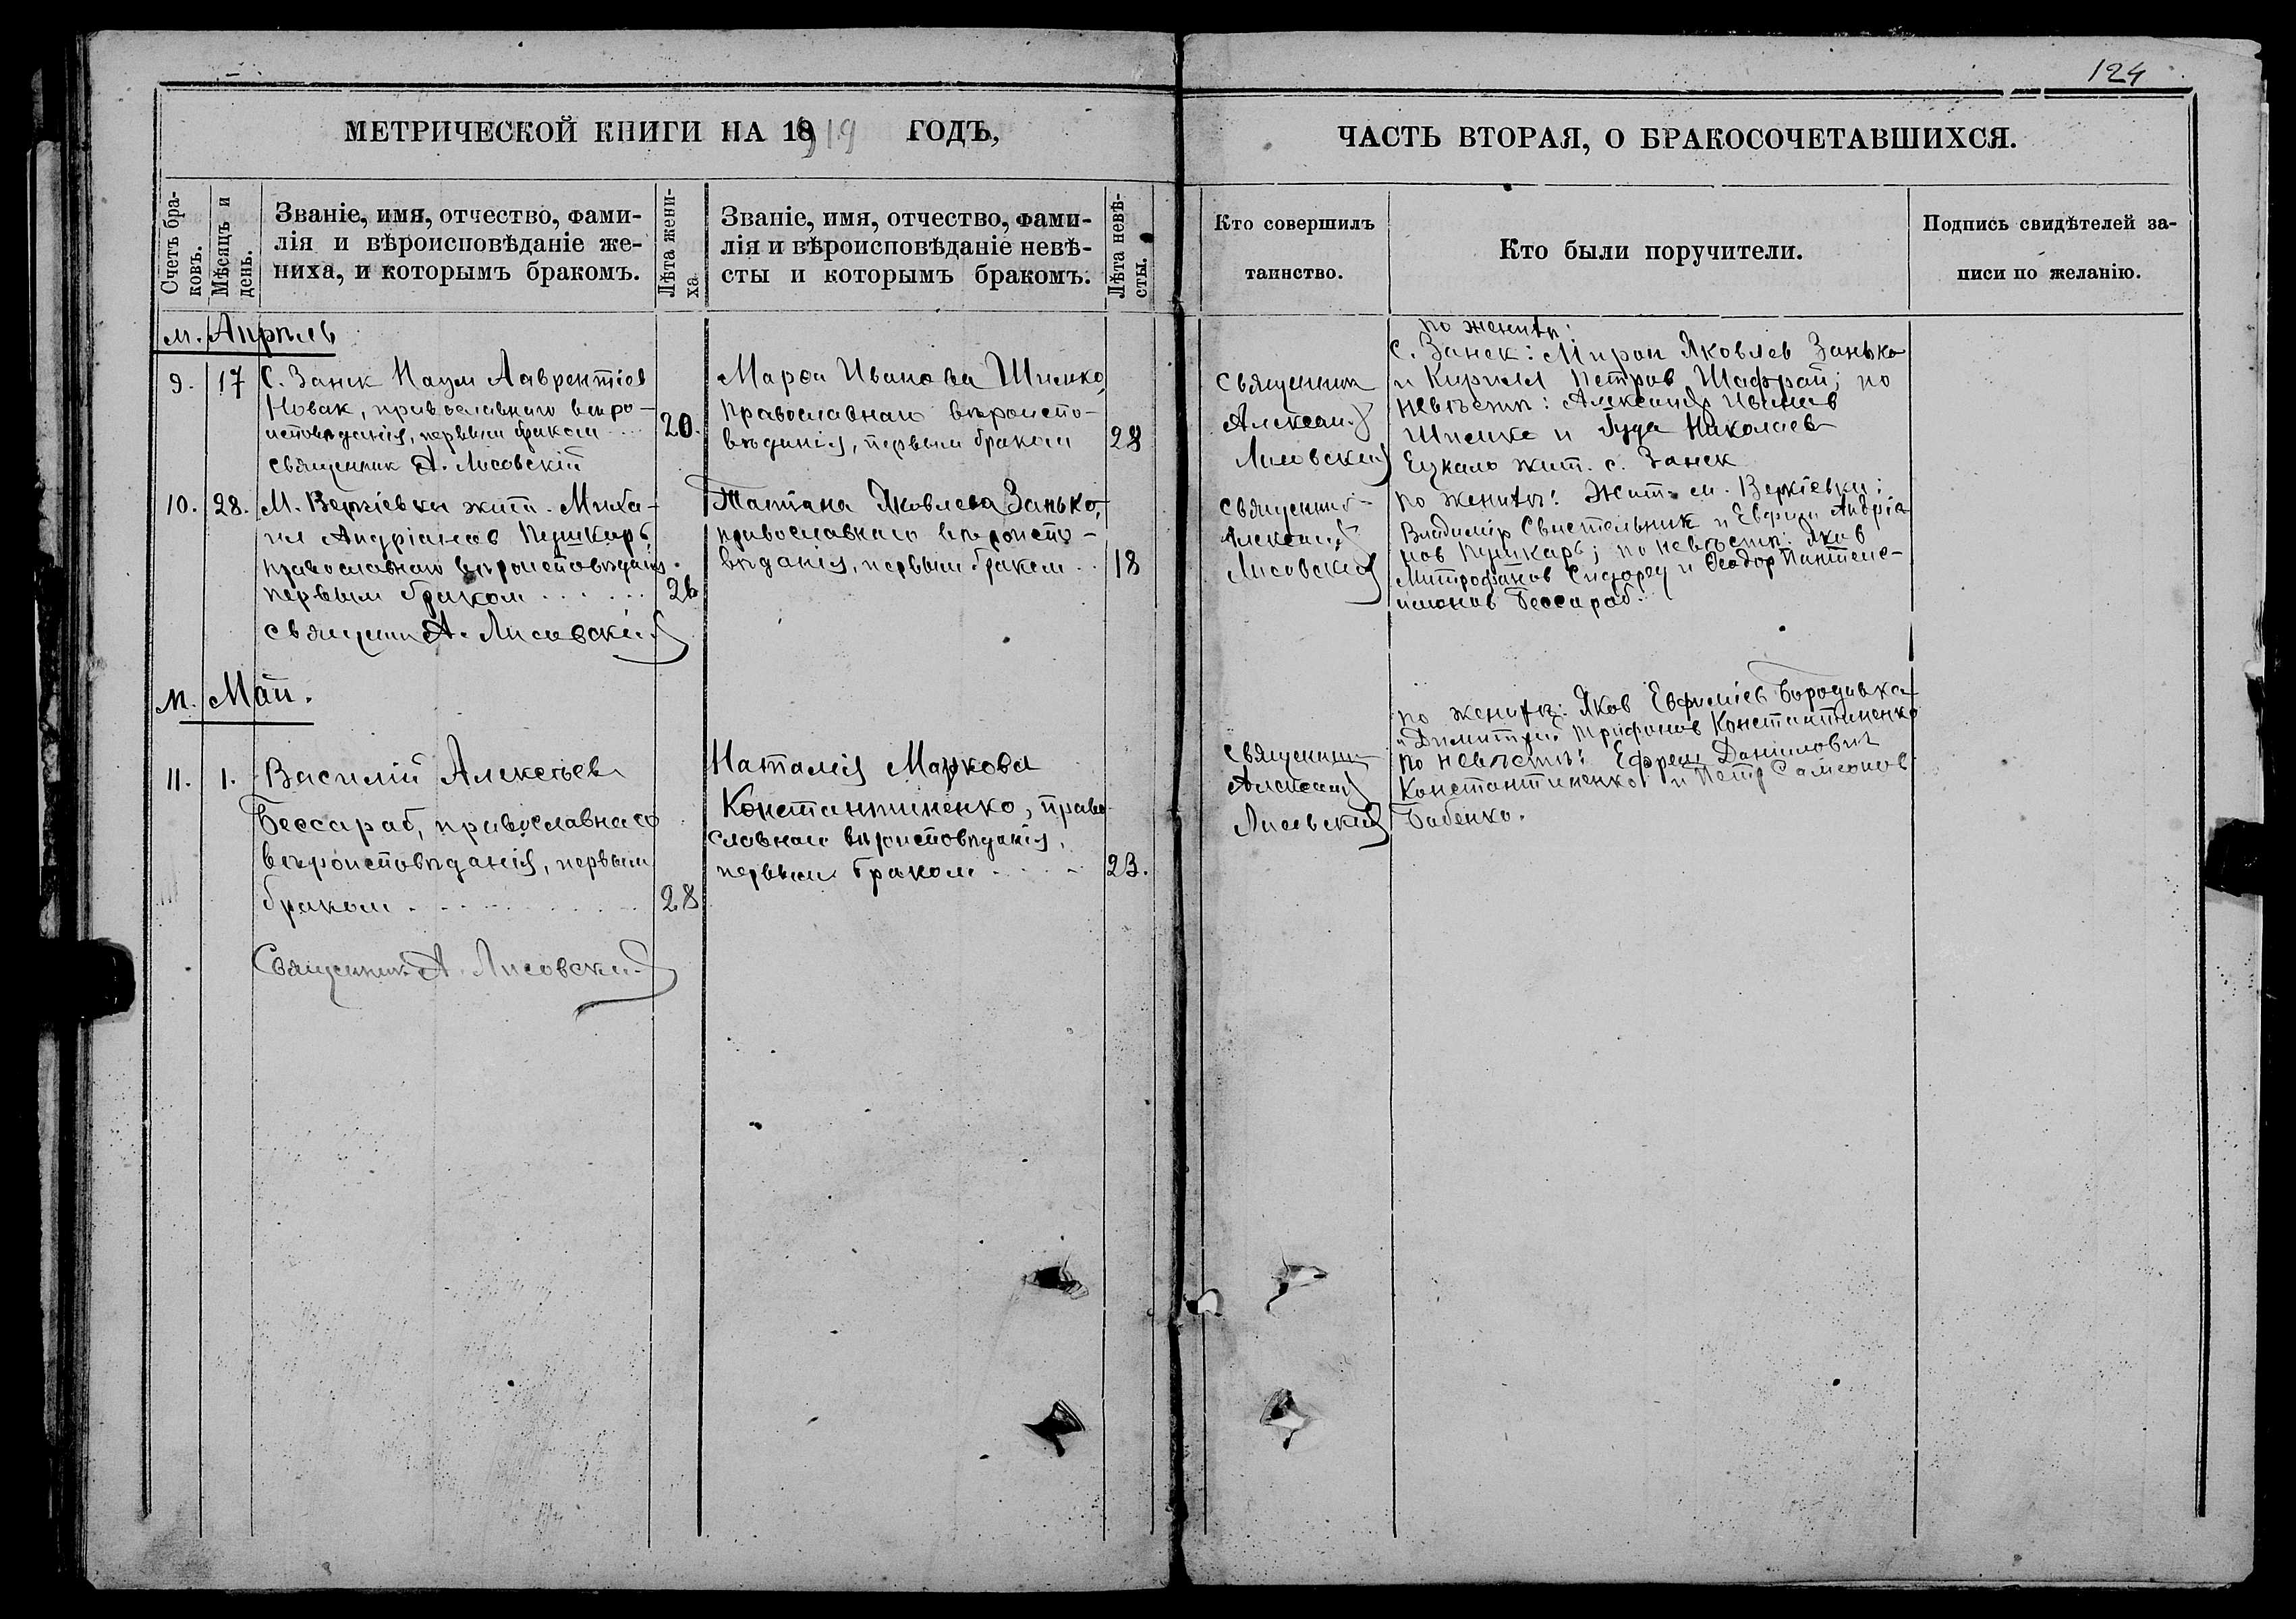 124
МЕТРИЧЕСКОЙ КНИГИ НА 1919 ГОДЪ,
ЧАСТЬ ВТОРАЯ, О БРАКОСОЧЕТАВШИХСЯ.
Счетъ бра-
ковъ.
Мѣсяцъ и
день.
Званіе, имя, отчество, фами-
лія и вѣроисповѣданіе же-
ниха, и которымъ бракомъ.
Лѣта жени-
ха
Званіе, имя, отчество, фами-
лія и вѣроисповѣданіе невѣ-
сты и которымъ бракомъ.
Лѣта невѣ-
сты.
Кто совершилъ
таинство.
Кто были поручители.
Подпись свидѣтелей за-
писи по желанію.
м. Апрѣль
9. 17 С. Занек Наум Лаврентіев
Новак, православнаго вѣро-
исповѣданія, первым браком
20.
священник А. Лисовскій
Марѳа Иванова Шиенко,
православнаго вѣроиспо-
вѣданія, первым браком
28
Священник
Александр
Лисовский
по женихѣ:
С. Занек: Мирон Яковлев Занько
и Кирилл Петров Шафран; по
невѣстѣ: Александр Иванов
Шиенко и Гуда Николаев
жит. с. Занек
10. 28. М. Веркіевки жит. Миха-
ил Андріанов Пушкарь
православнаго вѣроисповѣданія
первым браком
26
священник А. Лисовский
Татіана Яковлева Занько,
православнаго вѣроиспо-
вѣданія, первым браком
18
Священник
Александр
Лисовский
По женихѣ: Жит. м. Веркіевки:
Владимір Свистельник и Ефрем Андріа-
нов Пушкарь; по невѣстѣ: Яков
Митрофанов Сидорец и Ѳеодор Пантеле-
имонов Бессараб.
м. Май.
11. 1. Василій Алексѣев
Бессараб, православнаго
вѣроисповѣданія, первым
браком
28
Священник А. Лисовский
Наталія Маркова
Константиненко, право-
славнаго вѣроисповѣданія,
первым браком
23.
Священник
Александр
Лисовский
По женихѣ: Яков Евфиміев Бородавка
и Димитрій Трифонов Константиненко
по невѣстѣ: Ефрем Данилович
Константиненко и Петр Самсонов
Бабенко.